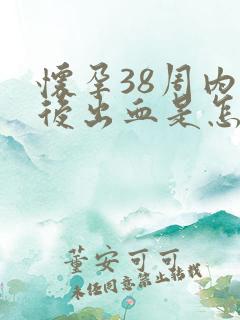 懷孕38周内
後出血是怎
董安可可
未经同意禁止转载